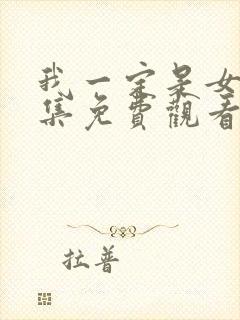 我一定是女
集免費觀看
拉普